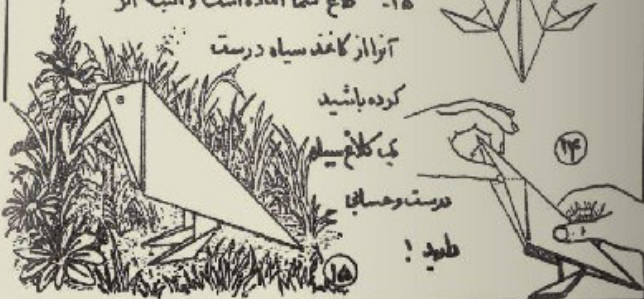 ۱۵- کلاغ شما آماده است و البته اگر
آنرا از کاغذ سیاه درست
کرده باشید
یک کلاغ سیاه
درست و حسابی
دارید !
۱۴
۱۵